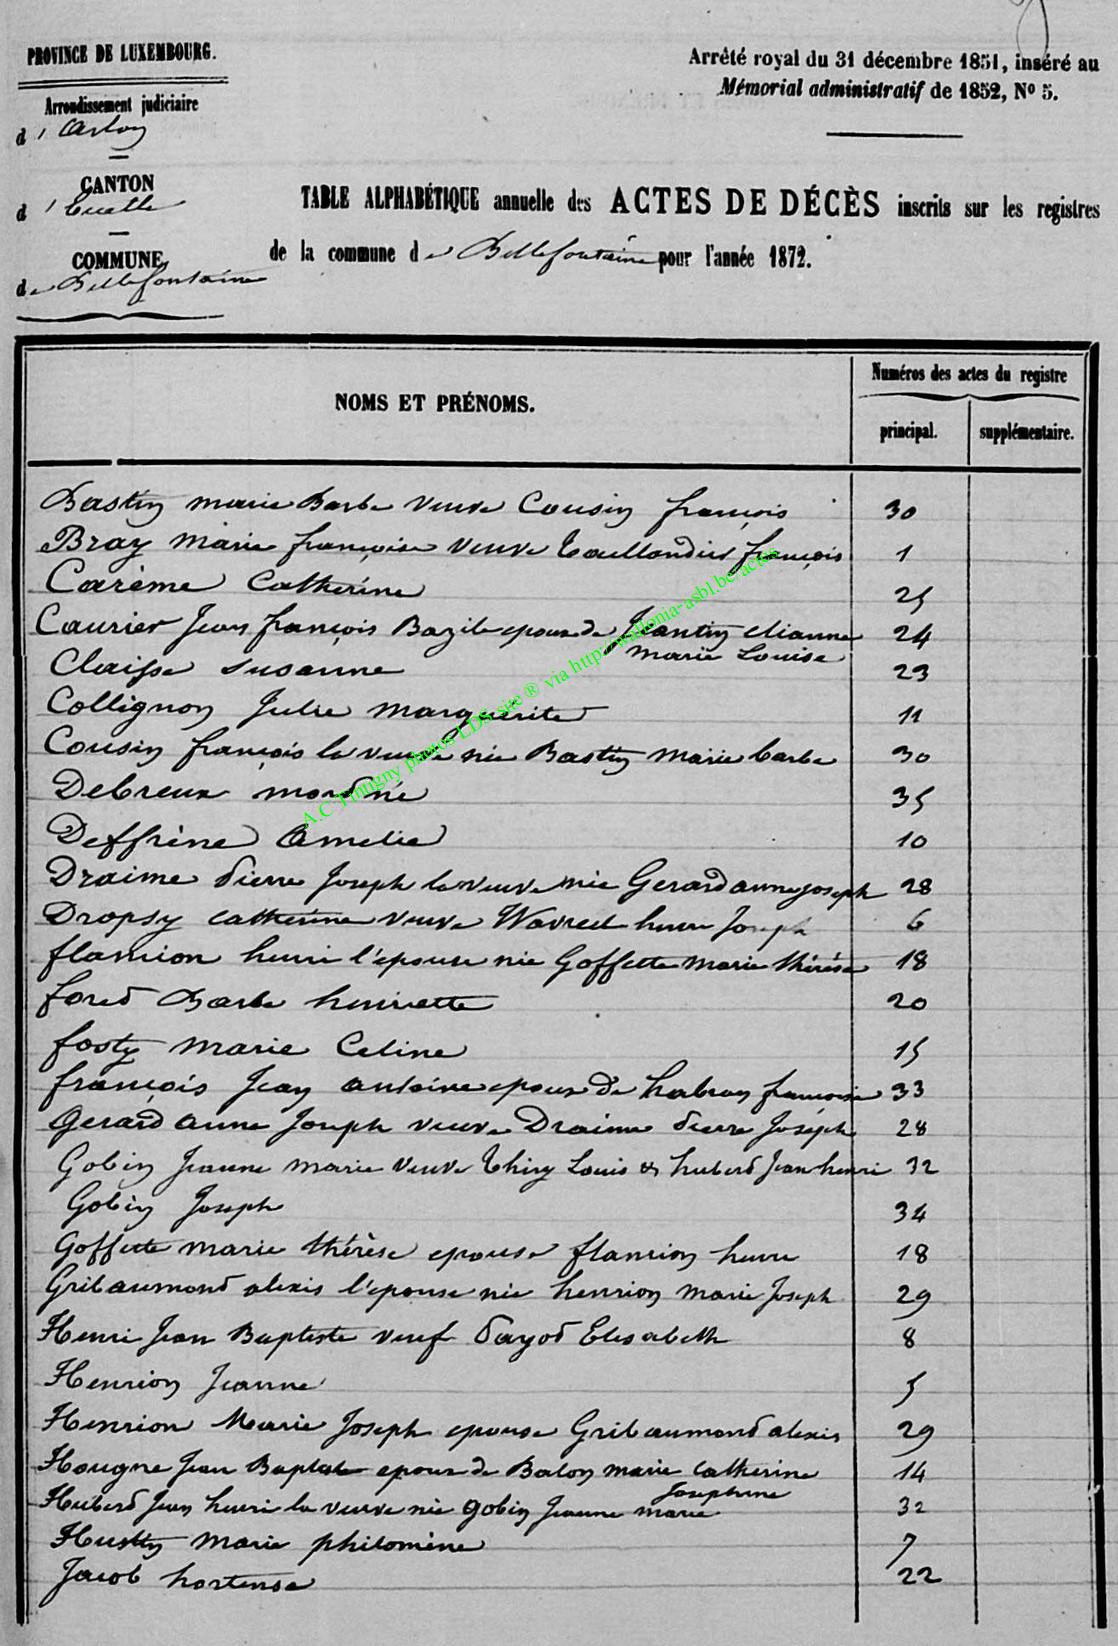 PROVINCE DE LUXEMBOURG.
Arrêté royal du 31 décembre 1851, inséré au
Mémorial administratif de 1852, Nº 5.
Arrondissement judiciaire
d'Arlon
CANTON
d'Etalle
COMMUNE
de Bellefontaine
TABLE ALPHABÉTIQUE annuelle des ACTES DE DÉCÈS inscrits sur les registres
de la commune de Bellefontaine pour l'année 1872.
NOMS ET PRÉNOMS.
Numéros des actes du registre
principal.
supplémentaire.
Bastin marie Barbe veuve Cousin françois 30
Bray marie françoise veuve Taillandier françois 1
Carème Catherine 25
Caurier Jean françois Bazile epoux de Jeantin 24
marie Louise
Claisse susanne 23
Collignon Julie marguerite 11
Cousin françois la veuve née Bastin marie barbe 30
Debreux 35
Deffrène Amelie 10
Draime Pierre Joseph la veuve née Gerard anne joseph 28
Dropsy catherine veuve henri Joseph 6
flamion henri l'epouse née Goffette marie thérèse 18
foret Barbe henriette 20
fosty marie Celine 15
françois Jean antoine epoux de habran françoise 33
Gerard anne Joseph veuve Draime Pierre Joseph 28
Gobin Jeanne marie veuve Thiry Louis & hubert Jean henri 32
Gobin Joseph 34
Goffette marie thérèse epouse flamion henri 18
Gribaumont alexis l'epouse née henrion marie Joseph 29
Henri Jean Baptiste veuf Payot Elisabeth 8
Henrion Jeanne 5
Henrion Marie Joseph epouse Gribaumont alexis 29
Hougne Jean Baptiste epoux de Balon marie catherine 14
Josephine
Hubert Jean henri la veuve née gobin Jeanne marie 32
Hustin marie philomène 7
Jacob hortense 22
A.C Tintigny photos LDS site ® via http://wallonia-asbl.be/actes